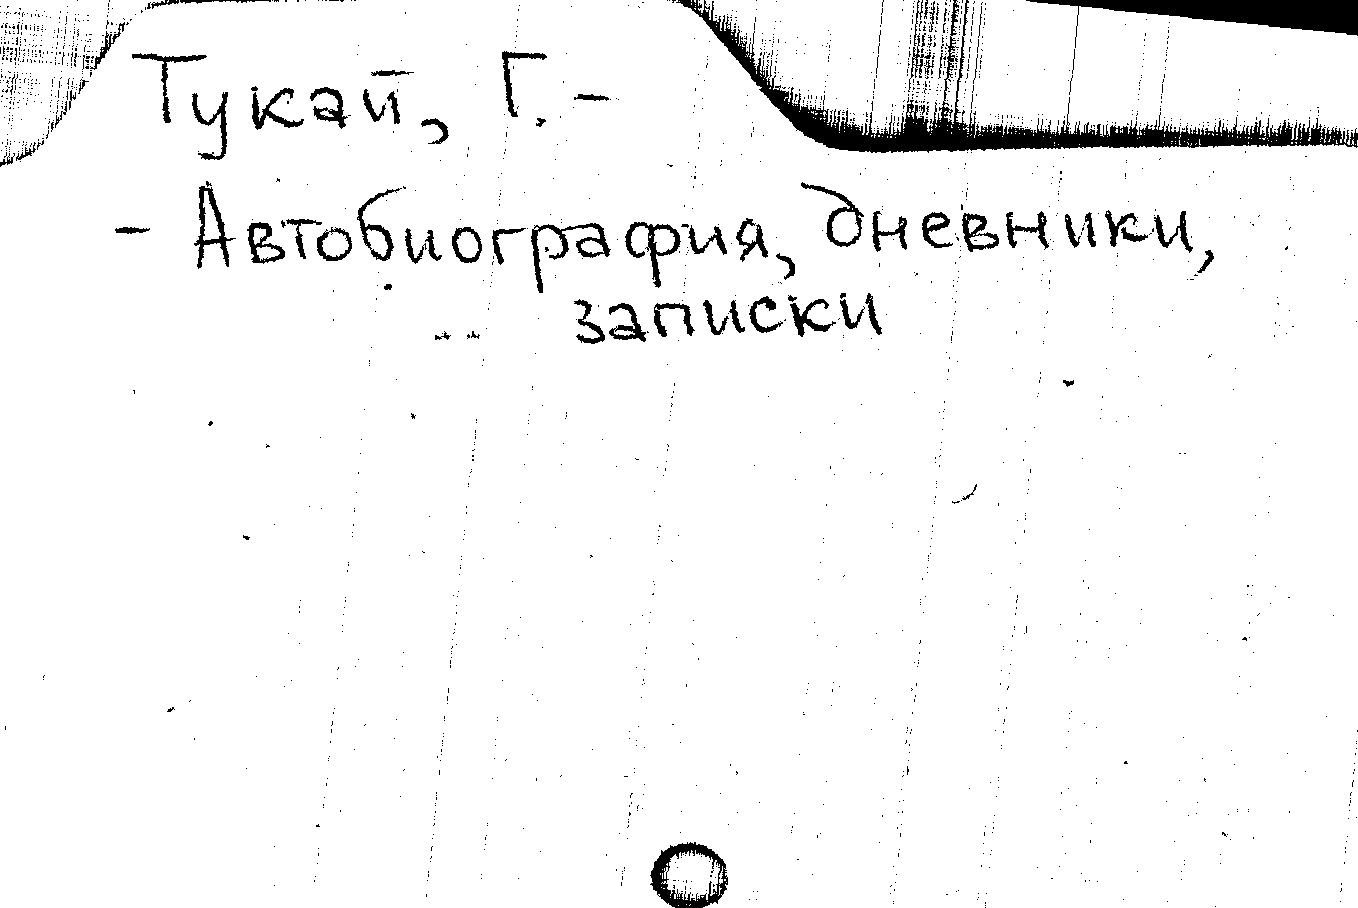 Тукай, Г. -
- Автобиография, дневники,
записки